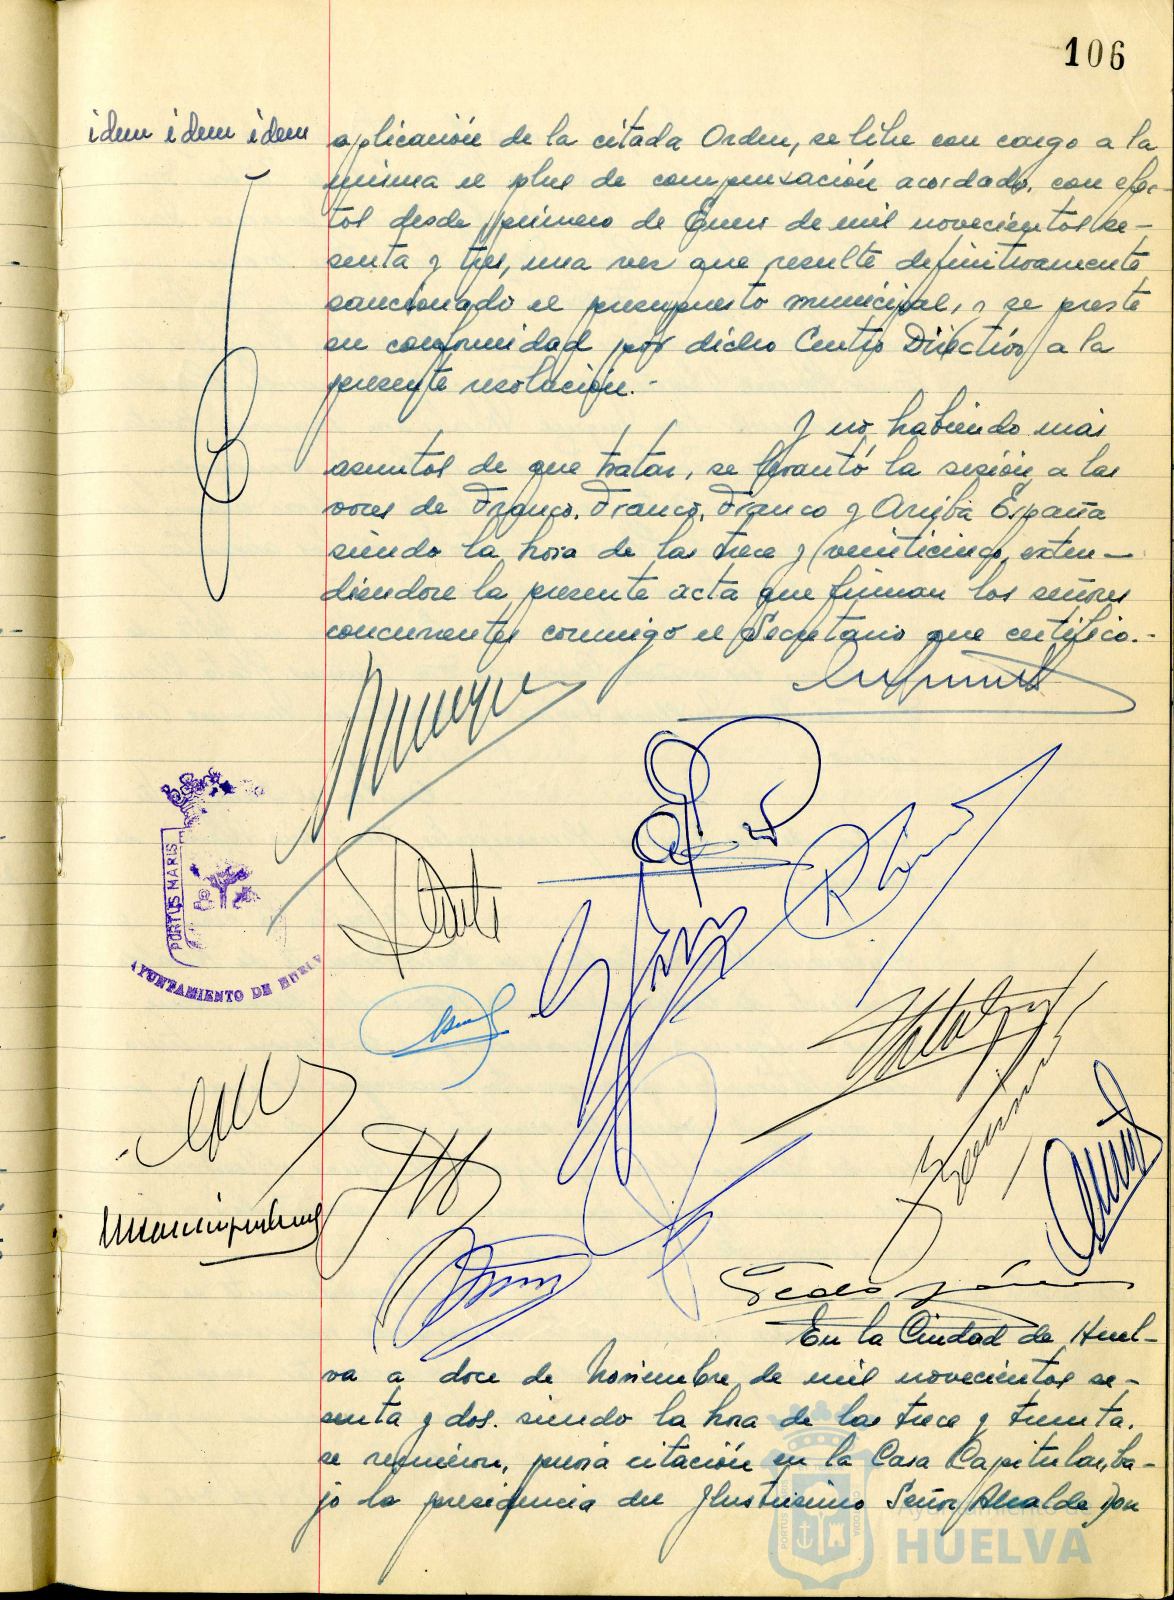 106
idem idem idem
aplicación de la citada Orden, se libre con cargo a la
misma el plus de compensación acordado, con efec-
tos desde primero de Enero de mil novecientos se-
senta y tres, una vez que resulte definitivamente
sancionado el presupuesto municipal, y se preste
su conformidad por dicho Centro Directivo a la
presente resolución.-
Y no habiendo más
asuntos de que tratar, se levantó la sesión a las
voces de Franco, Franco, Franco y Arriba España
siendo la hora de las trece y veinticinco, exten-
diéndose la presente acta que firman los señores
concurrentes conmigo el Secretario que certifico.-
PORTUS MARIS
AYUNTAMIENTO DE HUELV
En la Ciudad de Huel-
va a doce de Noviembre de mil novecientos se-
senta y dos, siendo la hora de las trece y treinta,
se reunieron, previa citación en la Casa Capitular, ba-
jo la presidencia del Ilustrísimo Señor Alcalde Don
Ayuntamiento de
HUELVA